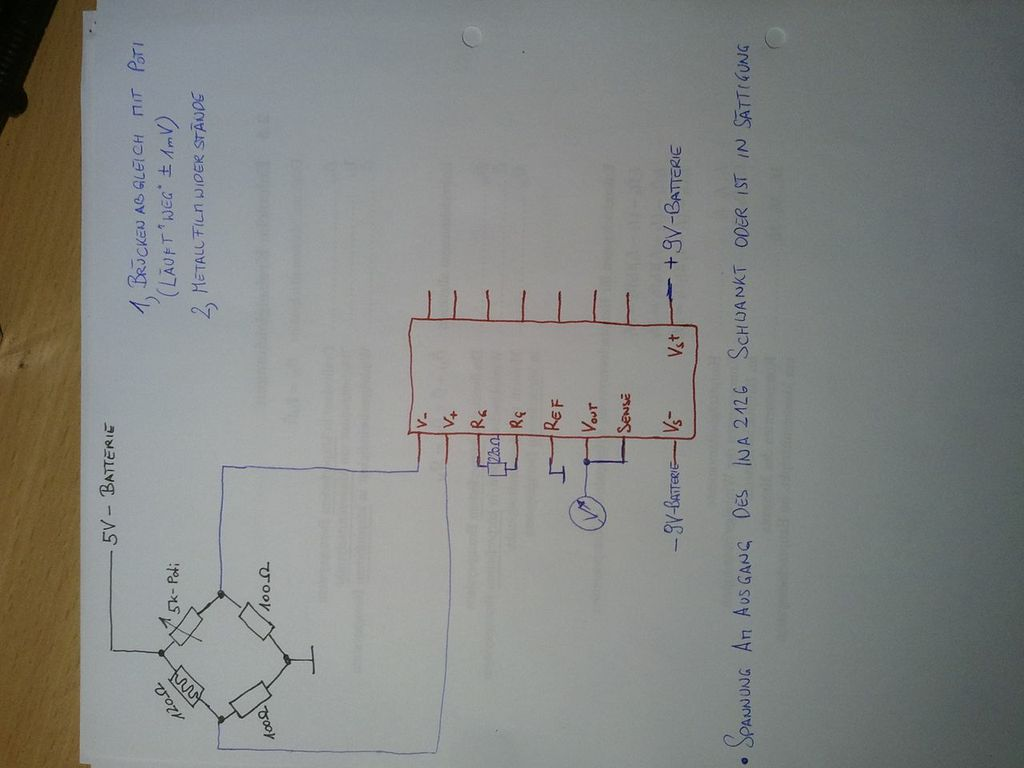 1) BRÜCKENABGLEICH MIT POTI
(LÄUFT "WEG" ± 1mV)
2) METALLFILMWIDERSTÄNDE
5V-BATTERIE
120Ω
5K-Poti
100Ω
100Ω
V-
V+
RG
220Ω
RG
REF
VOUT
SENSE
VS-
VS+
V
-9V-BATTERIE
+9V-BATTERIE
• SPANNUNG AM AUSGANG DES INA2126 SCHWANKT ODER IST IN SÄTTIGUNG